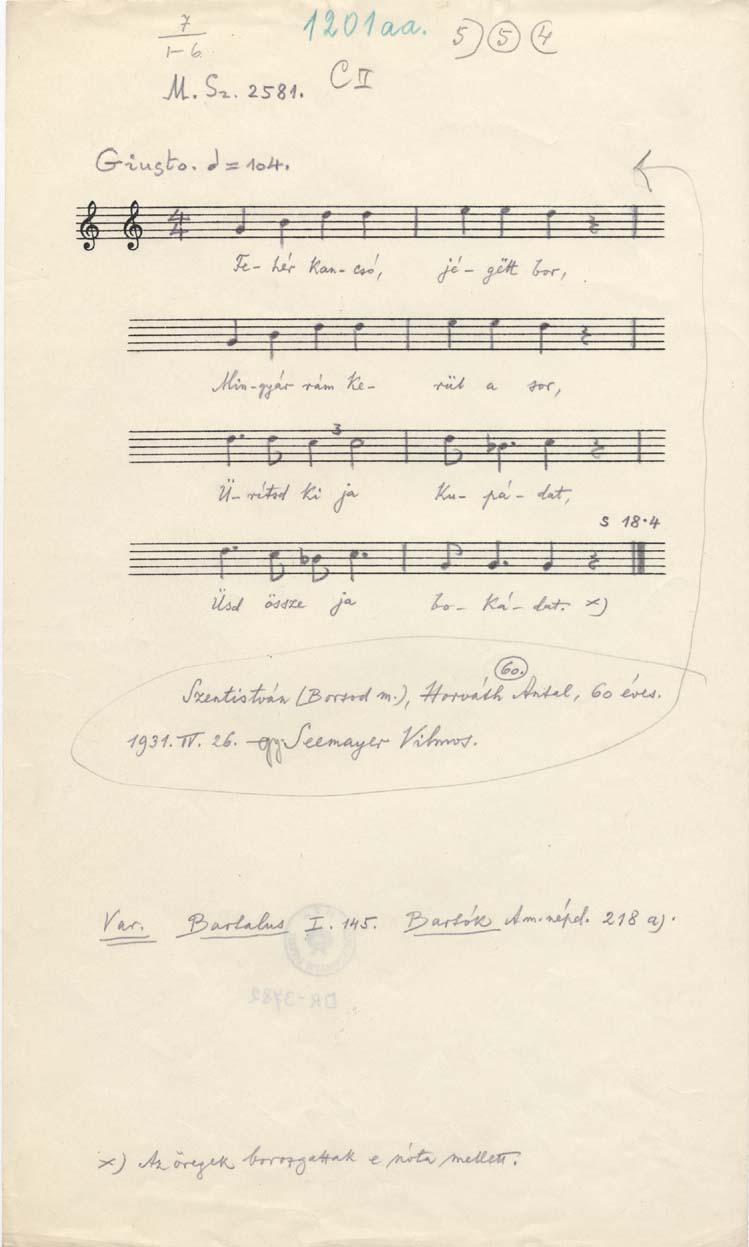 7
1-6.
1201aa.
5) 5 4
M. Sz. 2581.
C II
Giusto. d = 104.
4
4
Fe- hér kan- csó, jé- gëtt bor,
Min-gyár rám ke- rül a sor,
3
Ü- rítsd ki ja ku- pá- dat,
S 18·4
Üsd össze ja bo- ká- dat. x)
60.
Szentistván (Borsod m.), Horváth Antal, 60 éves.
1931. IV. 26. Seemayer Vilmos.
Var. Bartalus I. 145. Bartók A m. népd. 218 a).
DR-3782
x) Az öregek borozgattak e nóta mellett.